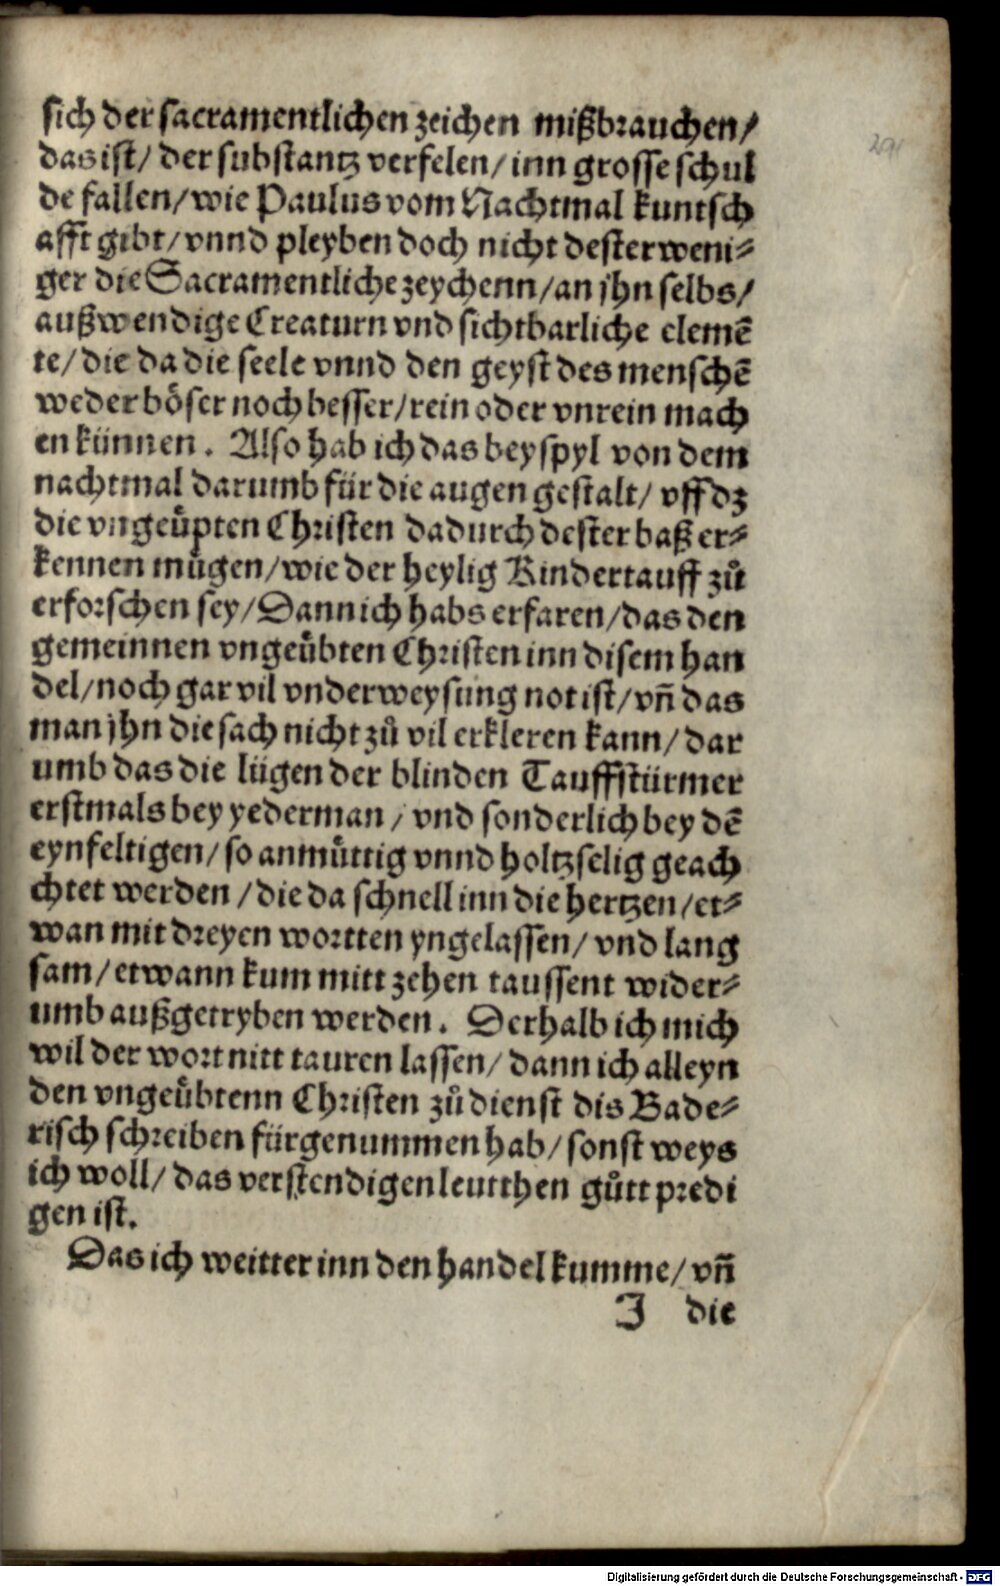 sich der sacramentlichen zeichen mißbrauchen/
das ist/ der substantz verfelen/ inn grosse schul
de fallen/ wie Paulus vom Nachtmal kuntsch
afft gibt/ vnnd pleyben doch nicht dester weni-
ger die Sacramentliche zeychenn/ an jhn selbs/
außwendige Creaturn vnd sichtbarliche elemē
te/ die da die seele vnnd den geyst des menschē
weder böser noch besser/ rein oder vnrein mach
en künnen. Also hab ich das beyspyl von dem
nachtmal darumb für die augen gestalt/ vff dz
die vngeuͤpten Christen dadurch dester baß er-
kennen muͤgen/ wie der heylig Kindertauff zuͦ
erforschen sey/ Dann ich habs erfaren/ das den
gemeinnen vngeuͤbten Christen inn disem han
del/ noch gar vil vnderweysung not ist/ vñ das
man jhn die sach nicht zuͦ vil erkleren kann/ dar
umb das die lügen der blinden Tauffstürmer
erstmals bey yederman/ vnd sonderlich bey dē
eynfeltigen/ so anmuͤttig vnnd holtzselig geach
chtet werden/ die da schnell inn die hertzen/ et-
wan mit dreyen wortten yngelassen/ vnd lang
sam/ etwann kum mitt zehen taussent wider-
umb außgetryben werden. Derhalb ich mich
wil der wort nitt tauren lassen/ dann ich alleyn
den vngeuͤbtenn Christen zuͦ dienst dis Bade-
risch schreiben fürgenummen hab/ sonst weys
ich woll/ das verstendigen leutthen guͦtt predi
gen ist.
Das ich weitter inn den handel kumme/ vñ
J die
291
Digitalisierung gefördert durch die Deutsche Forschungsgemeinschaft - DFG